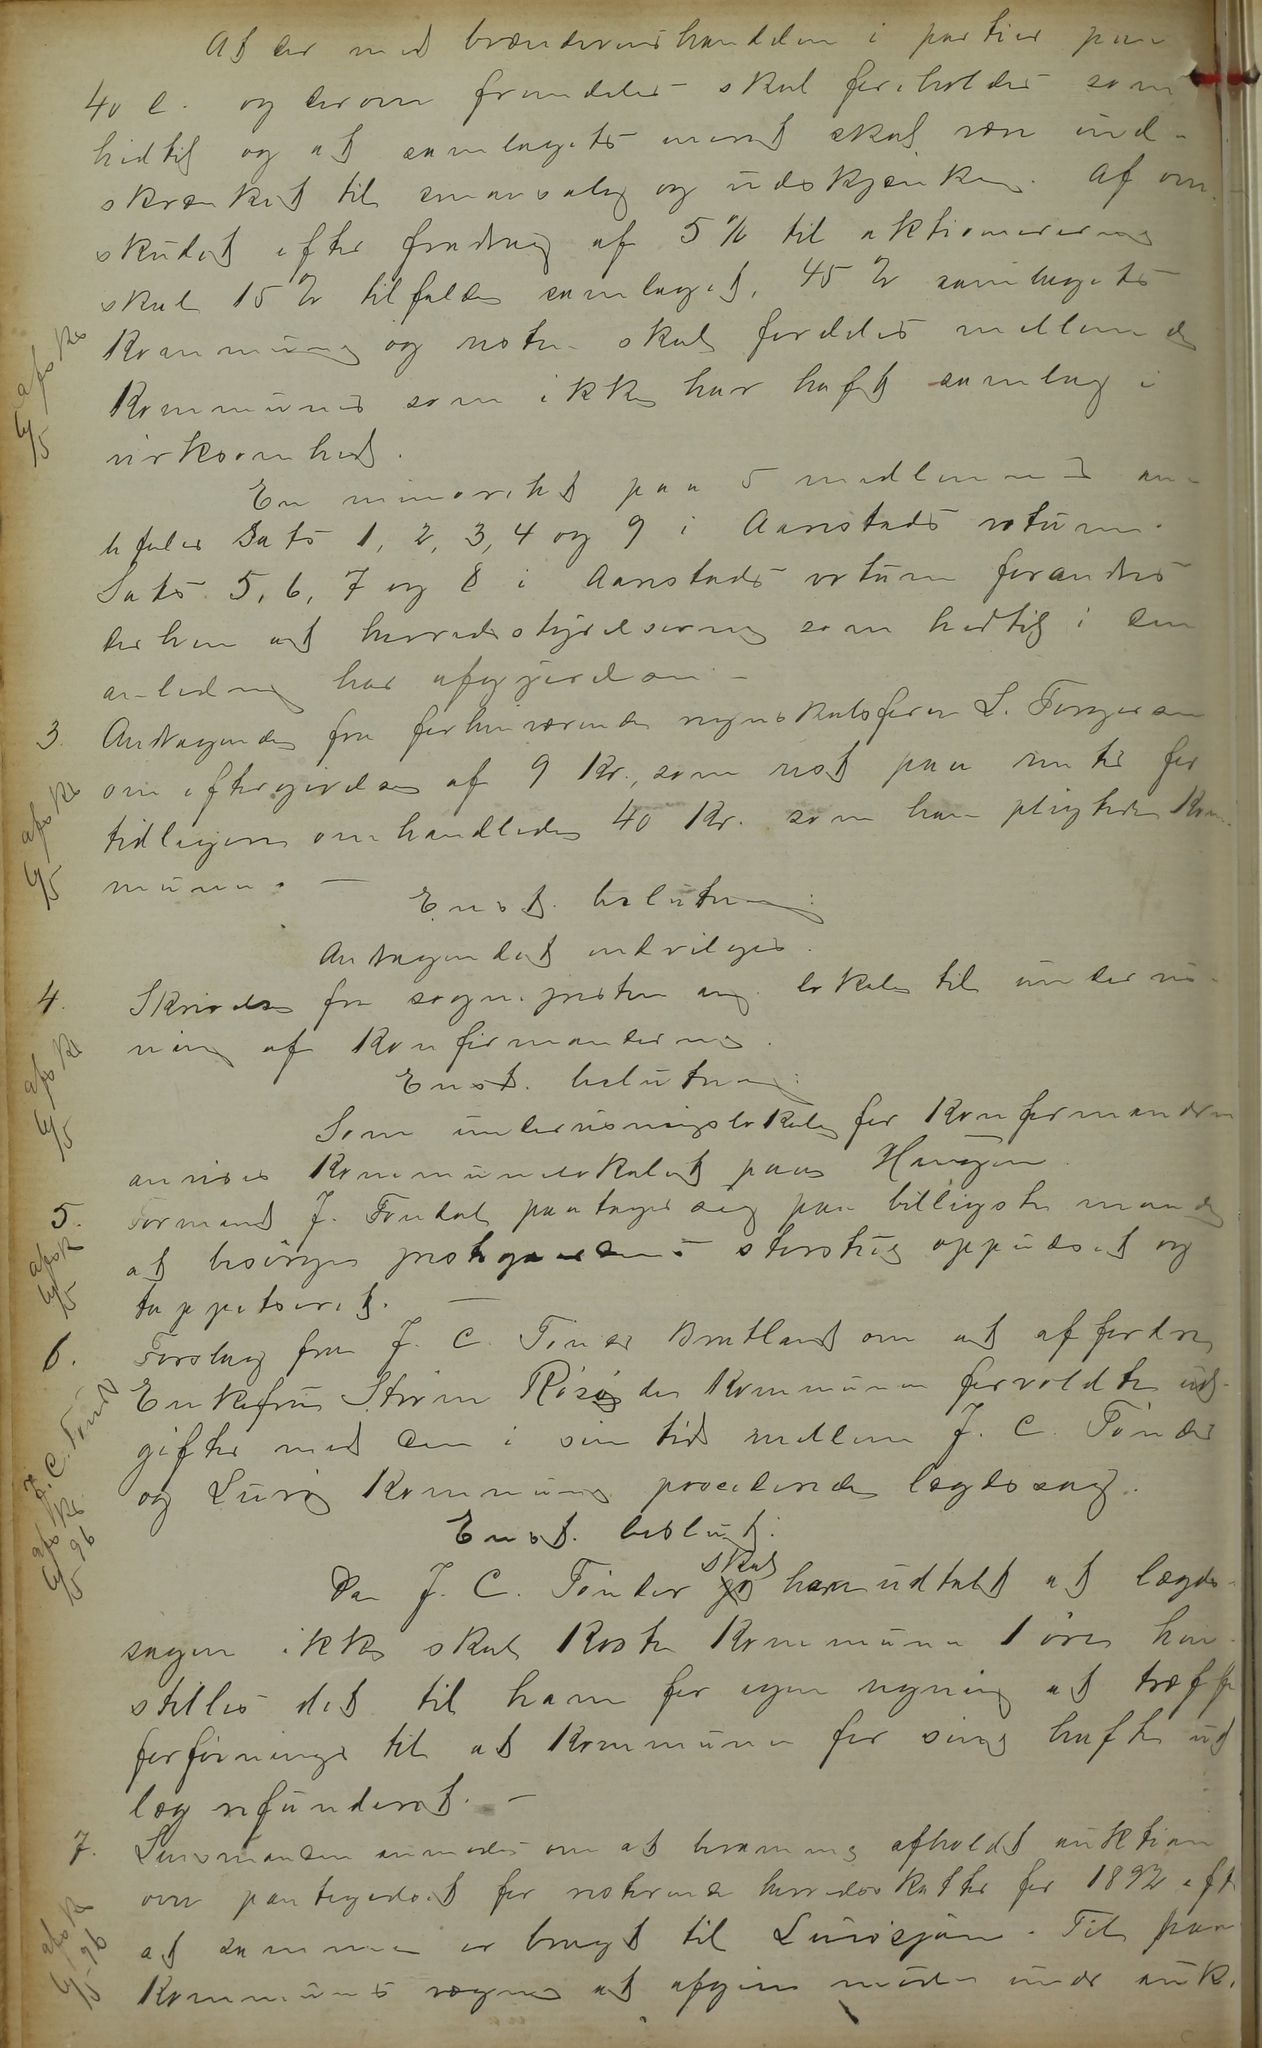 At der med brændevinshandelen i partier paa
40 l. og derover fremdeles skal forholdes som
hidtil og at samlagets eneret skal være ind-
skrænket til smaasalg og udskjænkning. Af over-
skudet efter fradrag af 5 % til aktionærerne
skal 15 % tilfalde samlaget, 45 % samlagets
Kommune og resten skal fordeles mellem de
Kommuner som ikke har havt samlag i
virksomhed.
afs. Kr
En minoritet paa 5 medlemmer an-
befaler Sats 1, 2, 3, 4 og 9 i Aarstads votum.
Sats 5, 6, 7 og 8 i Aarstads votum forandres
derhen at herredsstyrelserne som hidtil i den
anledning har afgjørelsen. -
3. Andragende fra forhenværende regnskabsfører L. Torgersen
om eftergivelse af 9 Kr., som rest paa renter for
tidligere omhandlede 40 Kr. som han pligtede Kom-
munen. -
Enst. beslutning:
Andragendet indvilges.
4. Skrivelse fra sognepresten ang. lokale til undervis-
ning af Konfirmanderne.
Enst. beslutning:
Som undervisningslokale for Konfirmanderne
anvises Kommunelokalet paa Haugen.
5. Formand J. Fondal paatager sig paa billigste maade
at besørge prestegaardens storstue oppudset og
tappetseret. -
6. Forslag fra J. C. Tønder Bratland om at affordre
Enkefru Strøm Røsø de Kommunen forvoldte ud-
gifter med den i sin tid mellem J. C. Tønder
og Lurø Kommune procederede lægdssag.
J. C. Tønder
Enst. beslut:
Da J. C. Tønder skal have udtalt at lægds-
sagen ikke skal koste Kommunen 1 øre hen-
stilles det til ham for egen regning at træffe
forføininger til at Kommunen for sine hafte ud
læg refunderet. -
7. Lensmanden anmodes om at beramme afholdt auktion
over pantegodset for resterende herredsskatter for 1892 efter
at samme er bragt til Lurøsjøen. Til paa
Kommunens vegne at afgive møde under auk-